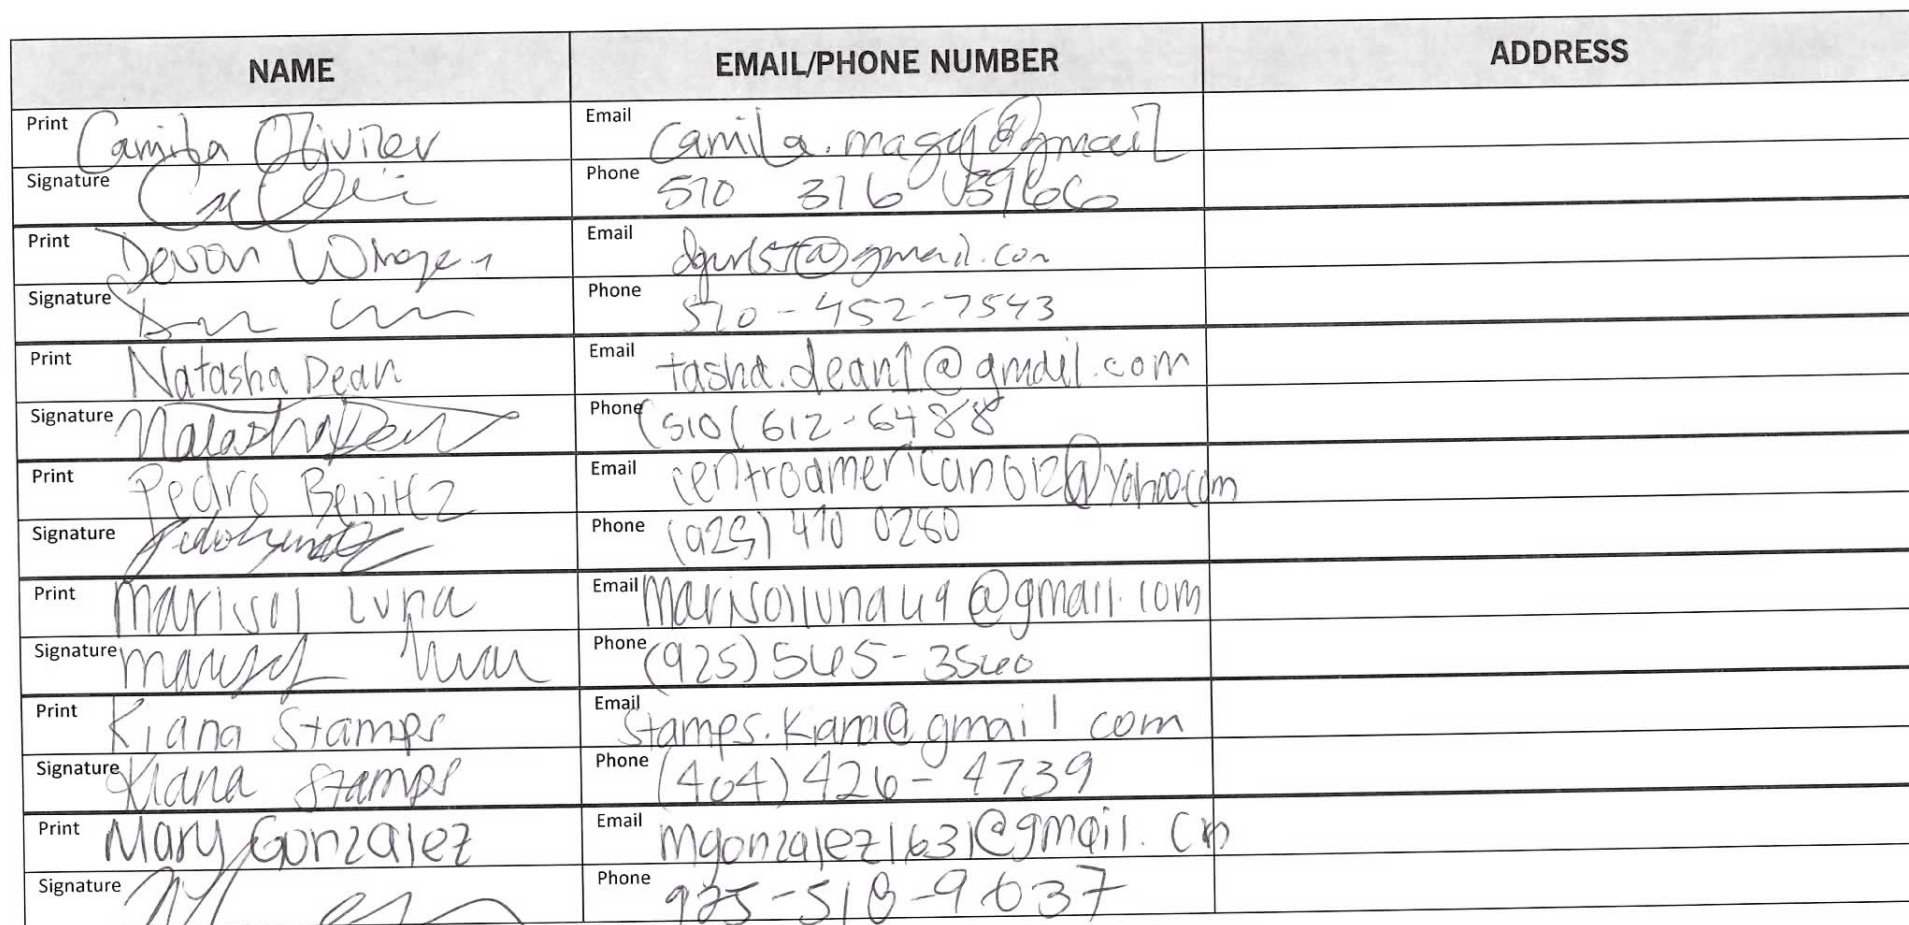 NAME EMAIL/PHONE NUMBER ADDRESS
Print Camila Email camila.magy@gmail
Signature Phone 510 316
Print Devon Email @gmail.com
Signature Phone 510-452-7543
Print Natasha Dean Email tasha.dean1@gmail.com
Signature Natasha Dean Phone (510( 612-6488
Print Pedro Benitez Email centroamerican612@yahoo.com
Signature Phone (925) 470 0280
Print Marisol Luna Email marisolluna49@gmail.com
Signature Marisol Luna Phone (925) 565-3560
Print Kiana Stamps Email Stamps.Kiana@gmail com
Signature Kiana Stamps Phone (404) 426-4739
Print Mary Gonzalez Email mgonzalez1631@gmail.
Signature Phone 925-518-9637